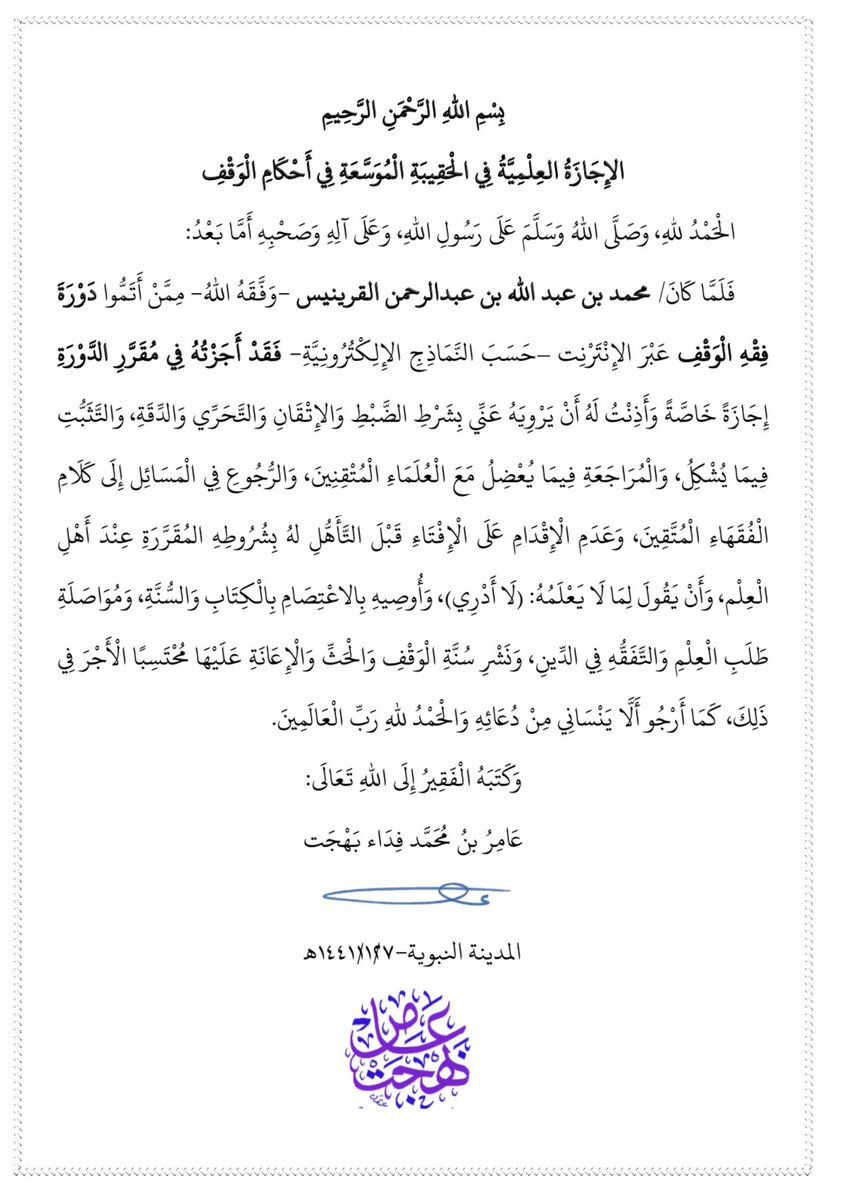 بِسْمِ اللهِ الرَّحْمَنِ الرَّحِيمِ
الإِجَازَةُ العِلْمِيَّةُ فِي الْحَقِيبَةِ الْمُوَسَّعَةِ فِي أَحْكَامِ الْوَقْفِ
الْحَمْدُ للهِ، وَصَلَّى اللهُ وَسَلَّمَ عَلَى رَسُولِ اللهِ، وَعَلَى آلِهِ وَصَحْبِهِ أَمَّا بَعْدُ:
فَلَمَّا كَانَ/ محمد بن عبد الله بن عبدالرحمن القرينيس –وَفَّقَهُ اللهُ– مِمَّنْ أَتَمُّوا دَوْرَةَ
فِقْهِ الْوَقْفِ عَبْرَ الإِنْتَرْنِت –حَسَبَ النَّمَاذِجِ الإِلِكْتُرُونِيَّةِ– فَقَدْ أَجَزْتُهُ فِي مُقَرَّرِ الدَّوْرَةِ
إِجَازَةً خَاصَّةً وَأَذِنْتُ لَهُ أَنْ يَرْوِيَهُ عَنِّي بِشَرْطِ الضَّبْطِ وَالإِتْقَانِ وَالتَّحَرِّي وَالدِّقَةِ، وَالتَّثَبُّتِ
فِيمَا يُشْكِلُ، وَالْمُرَاجَعَةِ فِيمَا يُعْضِلُ مَعَ الْعُلَمَاءِ الْمُتْقِنِينَ، وَالرُّجُوعِ فِي الْمَسَائِل إِلَى كَلَامِ
الْفُقَهَاءِ الْمُتَّقِينَ، وَعَدَمِ الْإِقْدَامِ عَلَى الْإِفْتَاءِ قَبْلَ التَّأَهُّلِ لهُ بِشُرُوطِهِ المُقَرَّرَةِ عِنْدَ أَهْلِ
الْعِلْم، وَأَنْ يَقُولَ لِمَا لَا يَعْلَمُهُ: (لَا أَدْرِي)، وَأُوصِيهِ بِالاعْتِصَامِ بِالْكِتَابِ وَالسُّنَّةِ، وَمُوَاصَلَةِ
طَلَبِ الْعِلْمِ وَالتَّفَقُّهِ فِي الدِّينِ، وَنَشْرِ سُنَّةِ الْوَقْفِ وَالْحَثِّ وَالْإِعَانَةِ عَلَيْهَا مُحْتَسِبًا الْأَجْرَ فِي
ذَلِكَ، كَمَا أَرْجُو أَلَّا يَنْسَانِي مِنْ دُعَائِهِ وَالْحَمْدُ للهِ رَبِّ الْعَالَمِينَ.
وَكَتَبَهُ الْفَقِيرُ إِلَى اللهِ تَعَالَى:
عَامِرُ بنُ مُحَمَّد فِدَاء بَهْجَت
المدينة النبوية–
عامر
بهجت